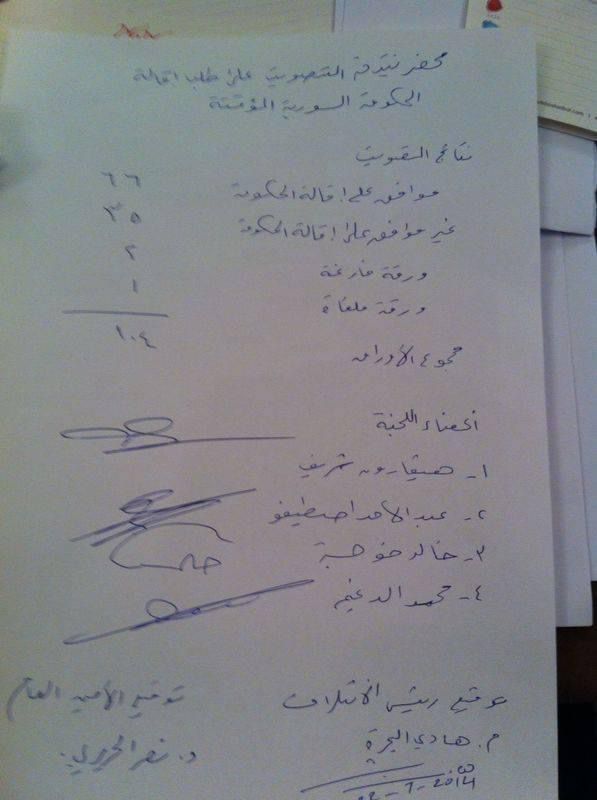 محضر نتيجة التصويت على طلب اقالة
الحكومة السورية المؤقتة
نتائج التصويت
موافق على اقالة الحكومة ٦٦
غير موافق على اقالة الحكومة ٣٥
ورقة فارغة ٢
ورقة ملغاة ١
مجموع الأوراق ١٠٤
أعضاء اللجنة
١- هيفارون شريف
٢- عبد الأحد اصطيفو
٣- خالد خوجة
٤- محمد الدغيم
توقيع رئيس الائتلاف توقيع الأمين العام
م. هادي البحرة د. نصر الحريري
22-7-2014